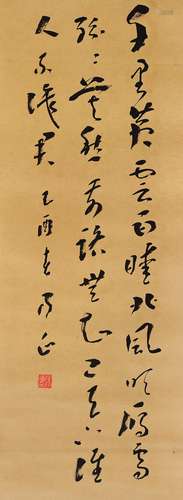 千里黄云白曛北風吹雁雪
紛〻莫愁前路無知己天下誰
人不識君　乙酉春